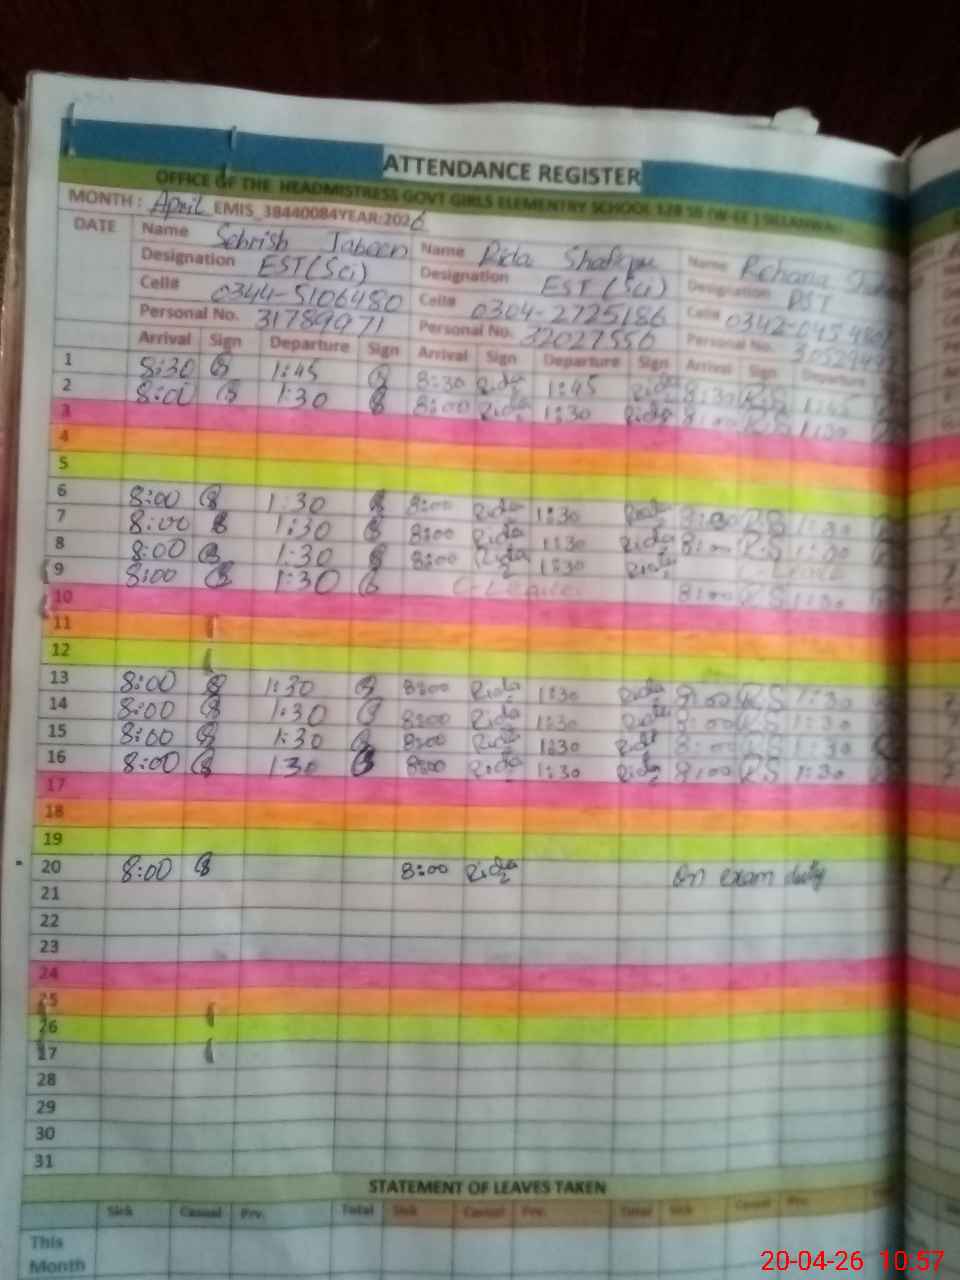 ATTENDANCE REGISTER
OFFICE OF THE HEADMISTRESS GOVT GIRLS ELEMENTRY SCHOOL 128 SB (W-EE) SILLANWALI
MONTH : April EMIS_38440084YEAR:2026
DATE Name Sehrish Jabeen Name Rida Shafique Name Rehana
Designation EST(Sci) Designation EST (Sci) Designation PST
Cell# 0344-5106480 Cell# 0304-2725186 Cell#
Personal No. 31789971 Personal No. 32027556 Personal No.
Arrival Sign Departure Sign Arrival Sign Departure Sign Arrival Sign Departure
1 8:30 1:45 8:30 Rida 1:45 Rida 8:30 R.S 1:45
2 8:00 1:30 8:00 Rida 1:30 Rida 8:00 R.S 1:30
3
4
5
6 8:00 1:30 8:00 Rida 1:30 Rida R.S 1:30
7 8:00 1:30 8:00 Rida 1:30 Rida 8:00 R.S
8 8:00 1:30 8:00 Rida 1:30 Rida C-Leave
9 8:00 1:30 C-Leave 8:00 R.S 1:30
10
11
12
13 8:00 1:30 8:00 Rida 1:30 Rida 8:00 R.S 1:30
14 8:00 1:30 8:00 Rida 1:30 Rida 8:00 R.S 1:30
15 8:00 1:30 8:00 Rida 1:30 Rida 8:00 R.S 1:30
16 8:00 130 8:00 Rida 1:30 Rida 8:00 R.S 1:30
17
18
19
20 8:00 8:00 Rida On exam duty
21
22
23
24
25
26
27
28
29
30
31
STATEMENT OF LEAVES TAKEN
Sick Casual Prv. Total Sick Casual Prv. Total Sick Casual Prv.
This
Month
20-04-26 10:57